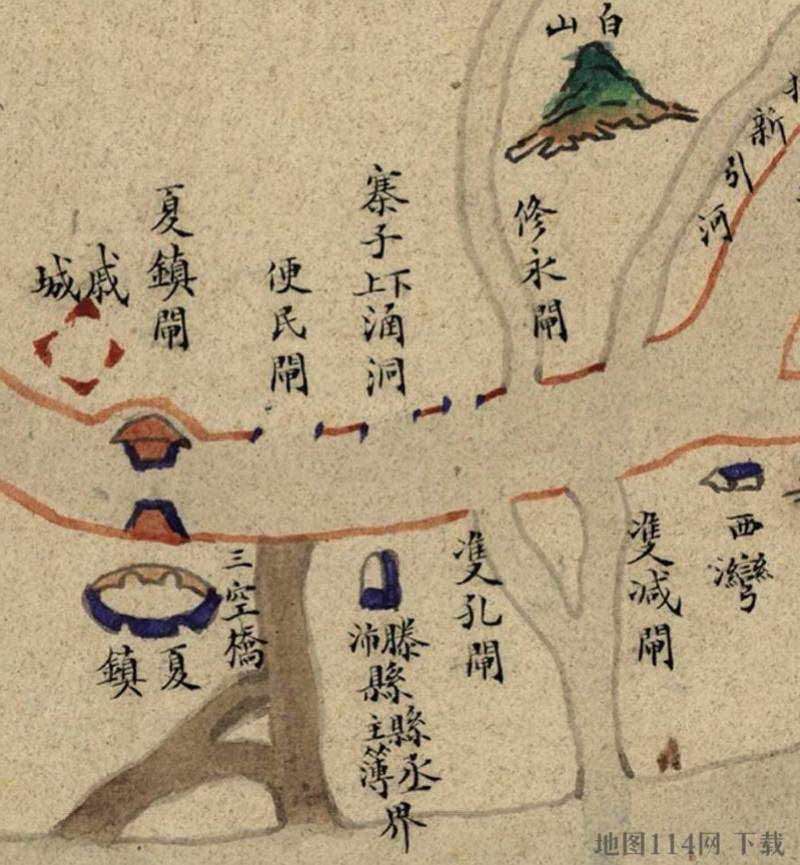 白山
新引河
修永閘
寨子上下涵洞
便民閘
夏鎮閘
戚城
西灣
雙減閘
雙孔閘
滕縣丞界
沛縣主簿
三空橋
夏鎮
地图114网 下载